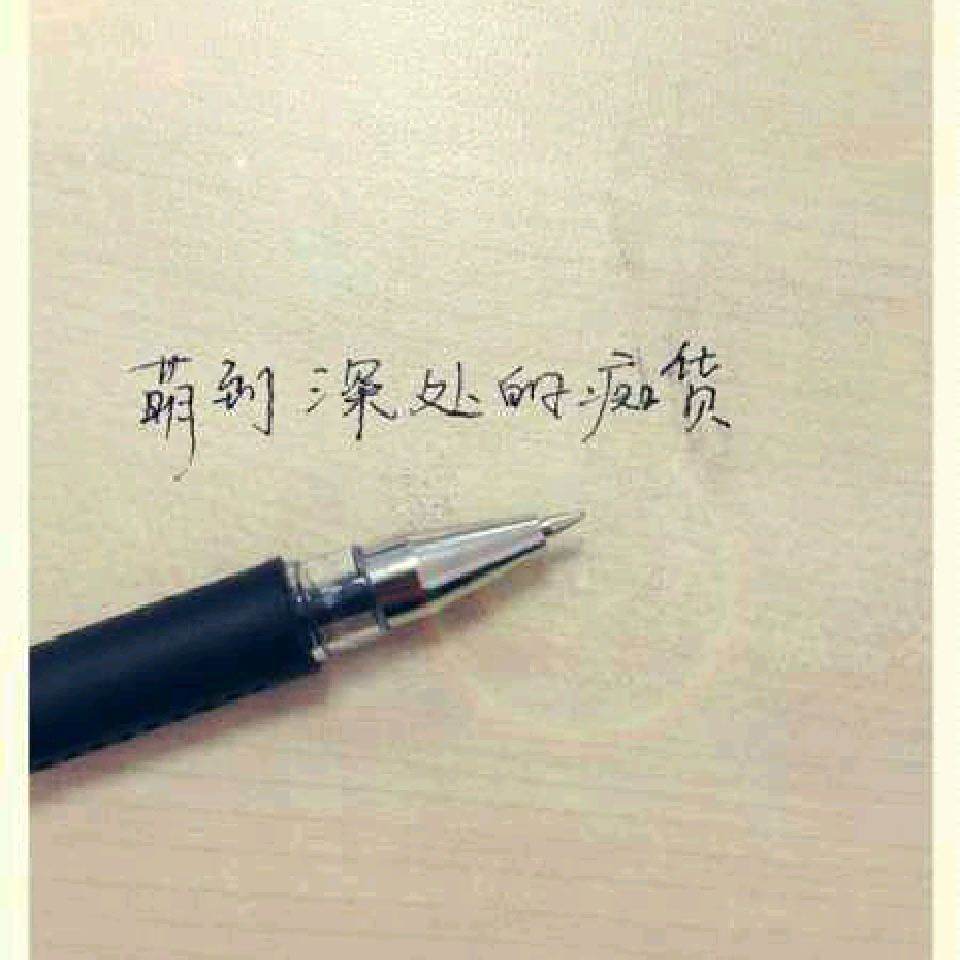 萌到深处的痴货